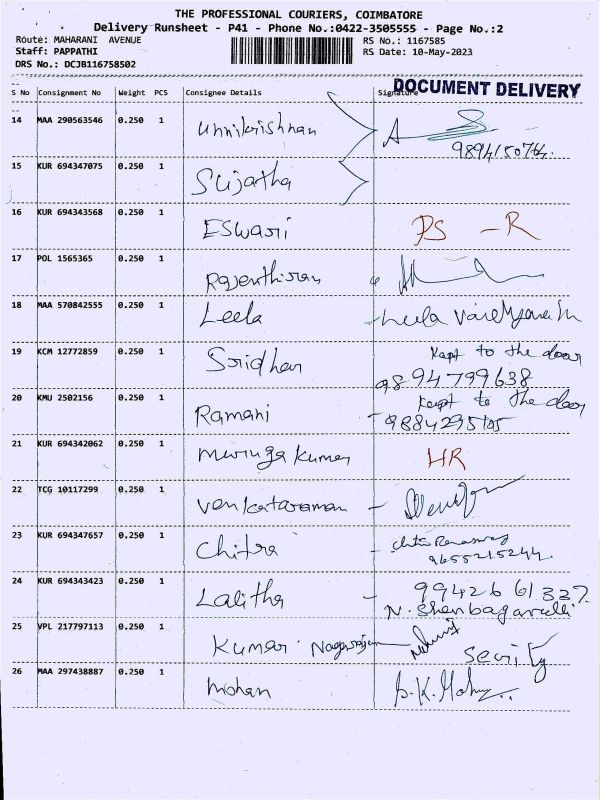 THE PROFESSIONAL COURIERS, COIMBATORE
Delivery Runsheet - P41 - Phone No.:0422-3505555 - Page No.:2
Route: MAHARANI AVENUE RS No.: 1167585
Staff: PAPPATHI RS Date: 10-May-2023
DRS No.: DCJB116758502
DOCUMENT DELIVERY
S No Consignment No Weight PCS Consignee Details Signature
14 MAA 290563546 0.250 1 Unnikrishnan
15 KUR 694347075 0.250 1 Sujatha
16 KUR 694343568 0.250 1 ESwari PS - R
17 POL 1565365 0.250 1 Rajenthiran
18 MAA 570842555 0.250 1 Leela - Leela
19 KCM 12772859 0.250 1 Sridhar Kept to the door
9894799638
20 KMU 2502156 0.250 1 Ramani - Kept to the door
21 KUR 694342062 0.250 1 Muruga Kumar HR
22 TCG 10117299 0.250 1 Venkataraman -
23 KUR 694347657 0.250 1 Chitra -
9655215244
24 KUR 694343423 0.250 1 Lalitha - 9942661337
N. Shenbagavalli
25 VPL 217797113 0.250 1 Kumar Nagarajan
26 MAA 297438887 0.250 1 Mohan